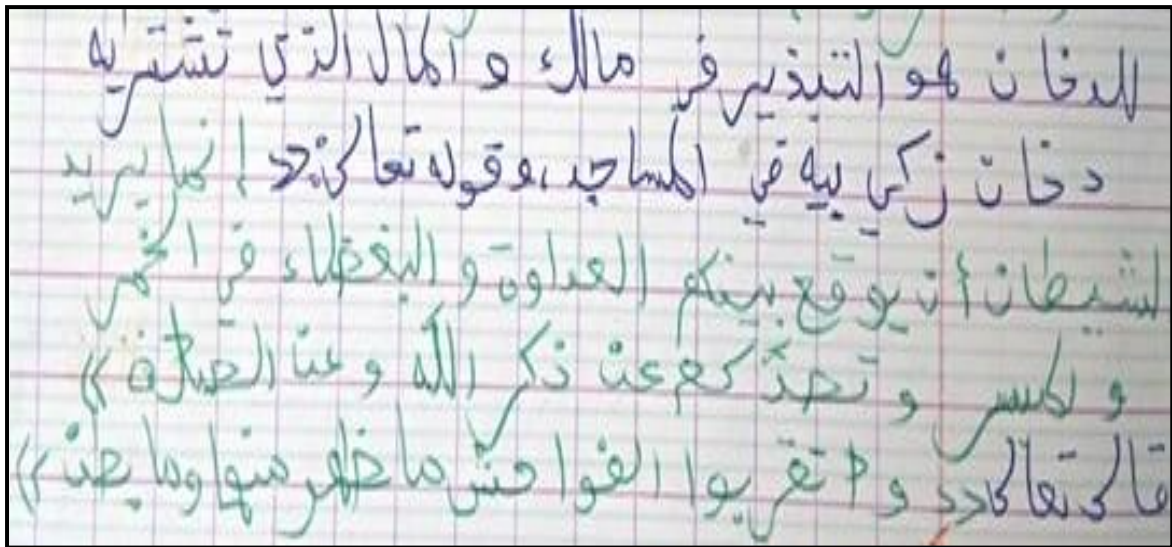 للدخان هو التبذير في مالك و المال الذي تشتريه
دخان زكي بيه في المساجد، وقوله تعالى: «إنما يريد
لشيطان أن يوقع بينكم العداوة و البغضاء في الخمر
و لميسر و تصدّكم عن ذكر الله و عن الصلاة»
قال تعالى «و لا تقربوا الفواحش ما ظهر منها وما بطن»